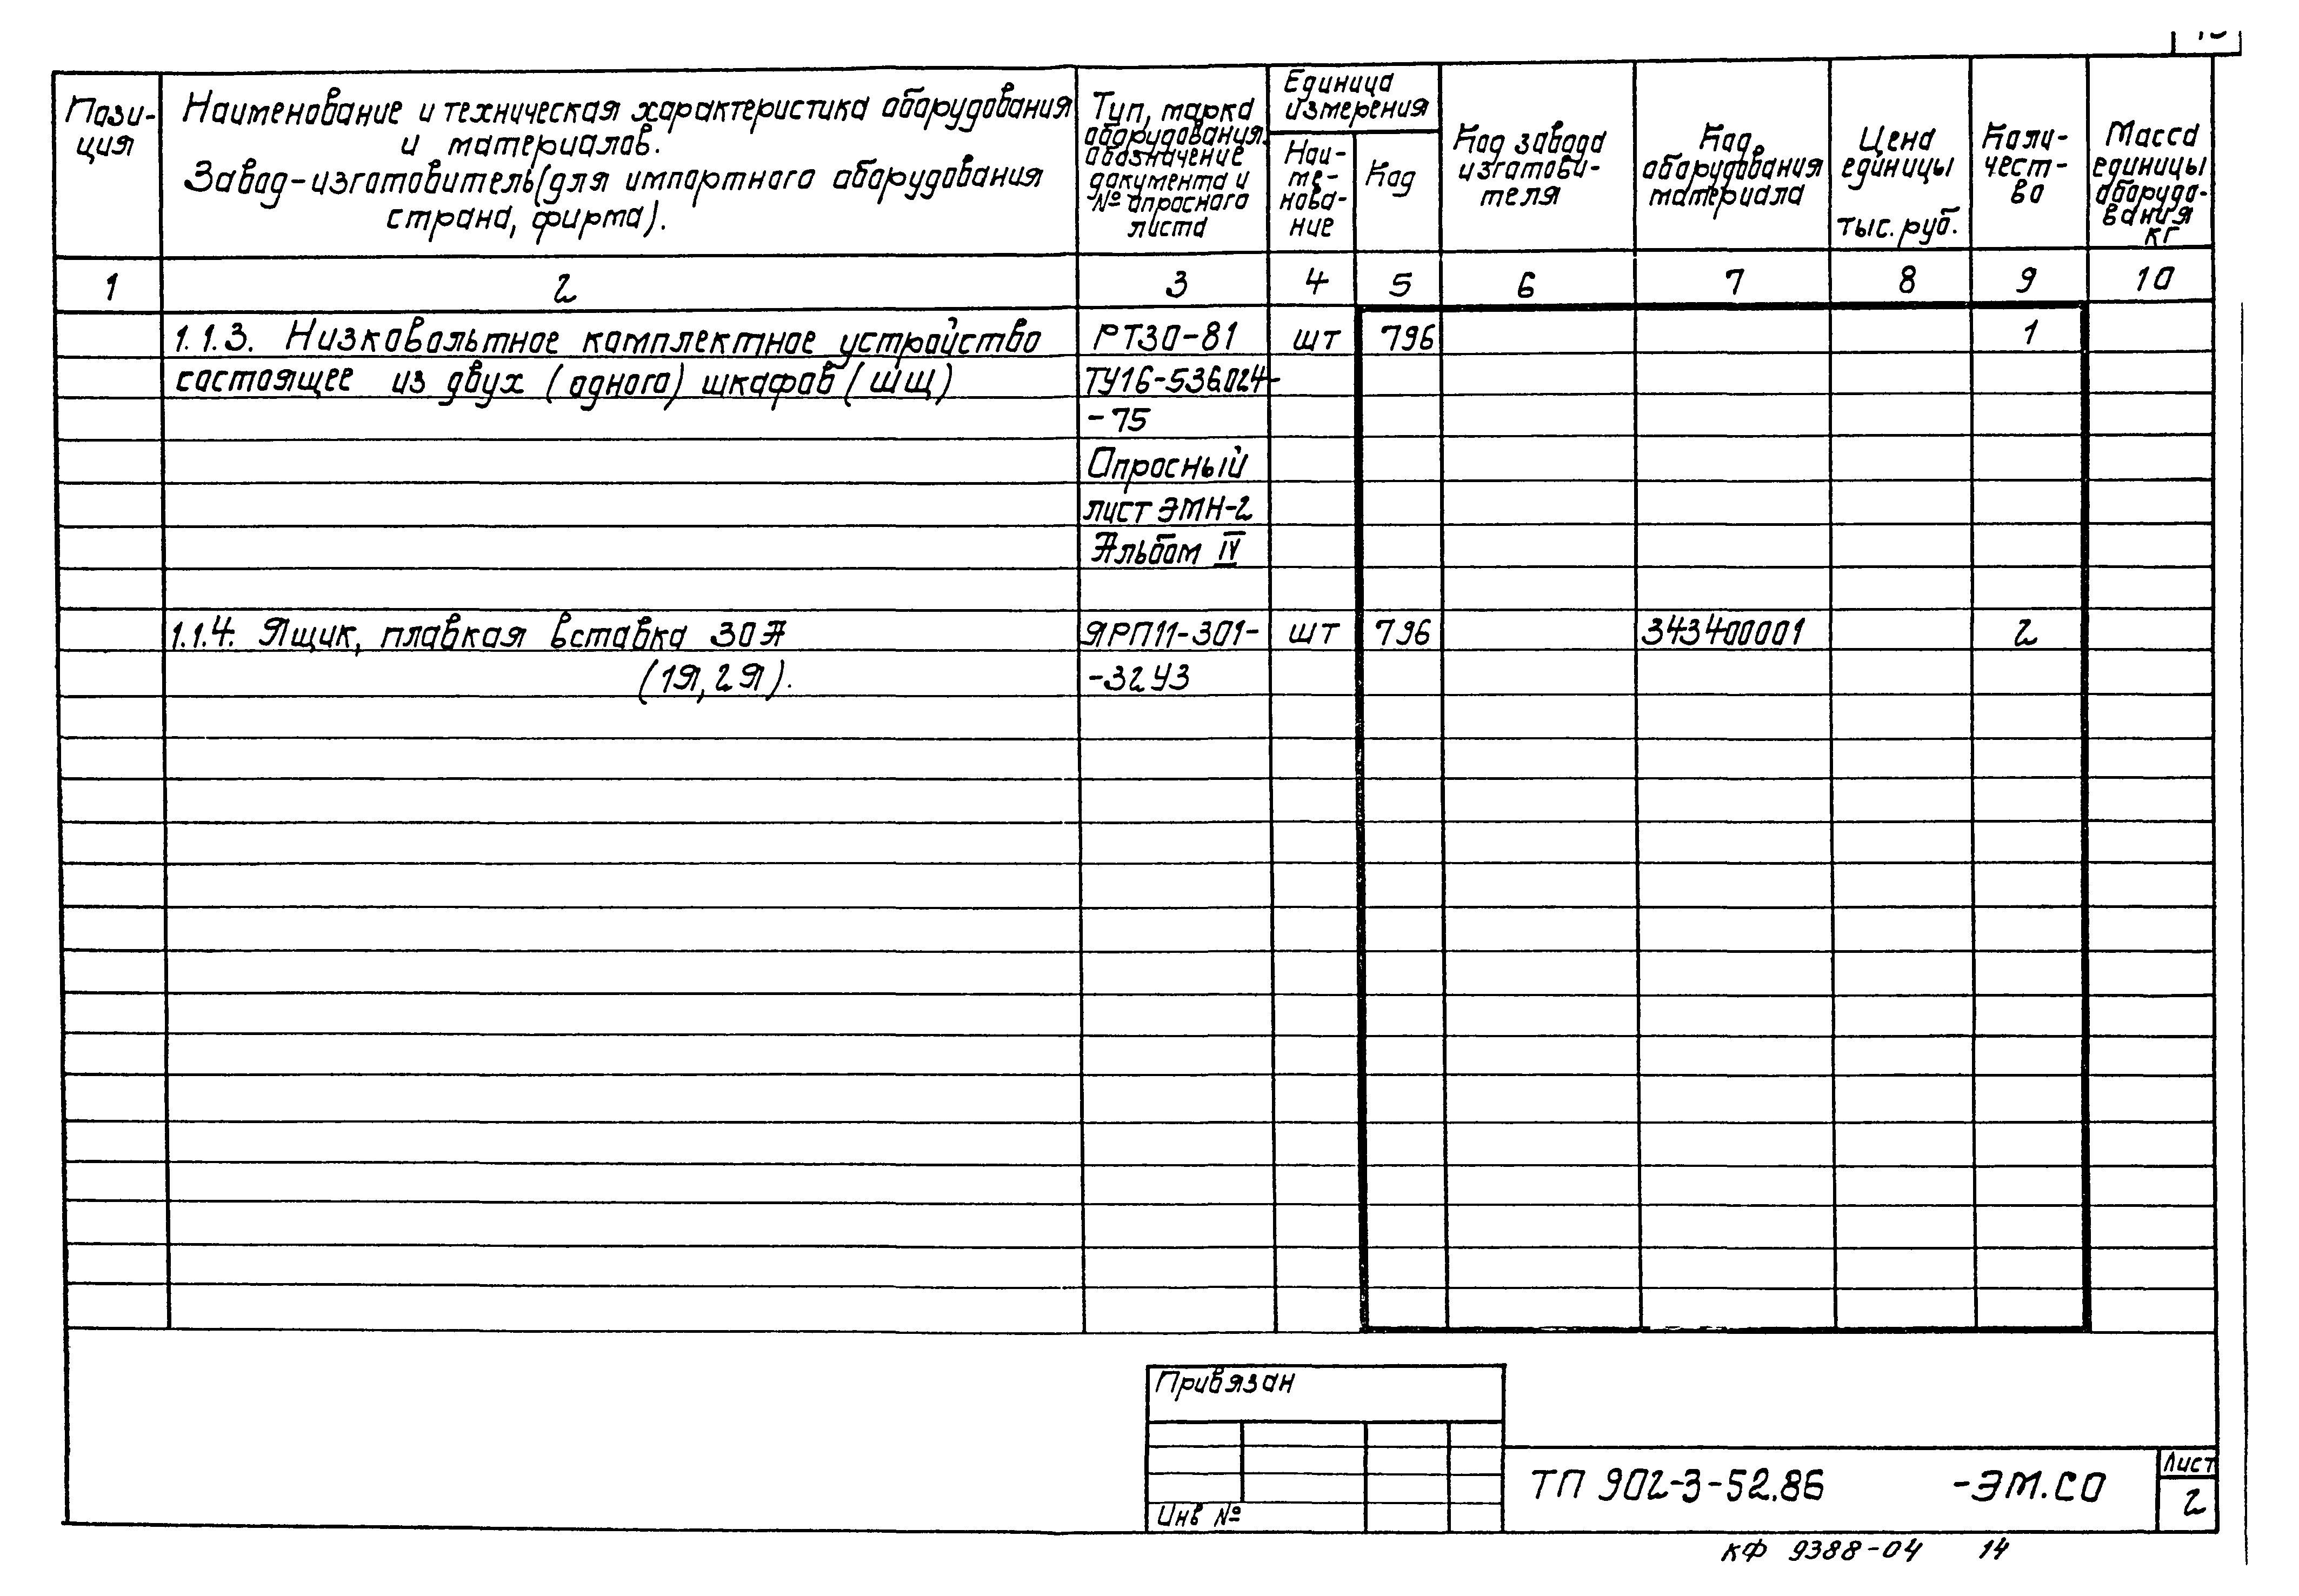 Пози-
ция
Наименование и техническая характеристика оборудования
и материалов.
Завод-изготовитель(для импортного оборудования
страна, фирма).
Тип, марка
оборудования.
обозначение
документа и
№ опросного
листа
Единица
измерения
Наи-
ме-
нова-
ние
Код
Код завода
изготови-
теля
Код
оборудования
материала
Цена
единицы
тыс. руб.
Коли-
чест-
во
Масса
единицы
оборудо-
вания
кг
1 2 3 4 5 6 7 8 9 10
1.1.3. Низковольтное комплектное устройство РТ30-81 шт 796 1
состоящее из двух (одного) шкафов (ШЩ) ТУ16-536.024-
-75
Опросный
лист ЭМН-2
Альбом IV
1.1.4. Ящик, плавкая вставка 30А ЯРП11-301- шт 796 343400001 2
(1Я, 2Я). -32У3
Привязан
Инв №
ТП 902-3-52.86 -ЭМ.СО
Лист
2
КФ 9388-04 14